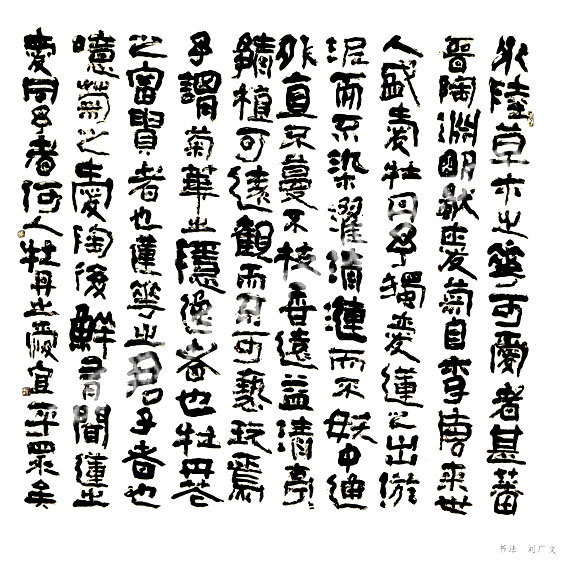 水陸草木之華可愛者甚蕃
晉陶淵明獨愛菊自李唐來世
人盛愛牡丹予獨愛蓮之出淤
泥而不染濯清漣而不妖中通
外直不蔓不枝香遠益清亭
植可遠觀而不可褻玩焉
予謂菊華之隱逸者也牡丹花
之富貴者也蓮華之君子者也
噫菊之愛陶後鮮有聞蓮之
愛同予者何人牡丹之愛宜乎眾矣
书法 刘广文